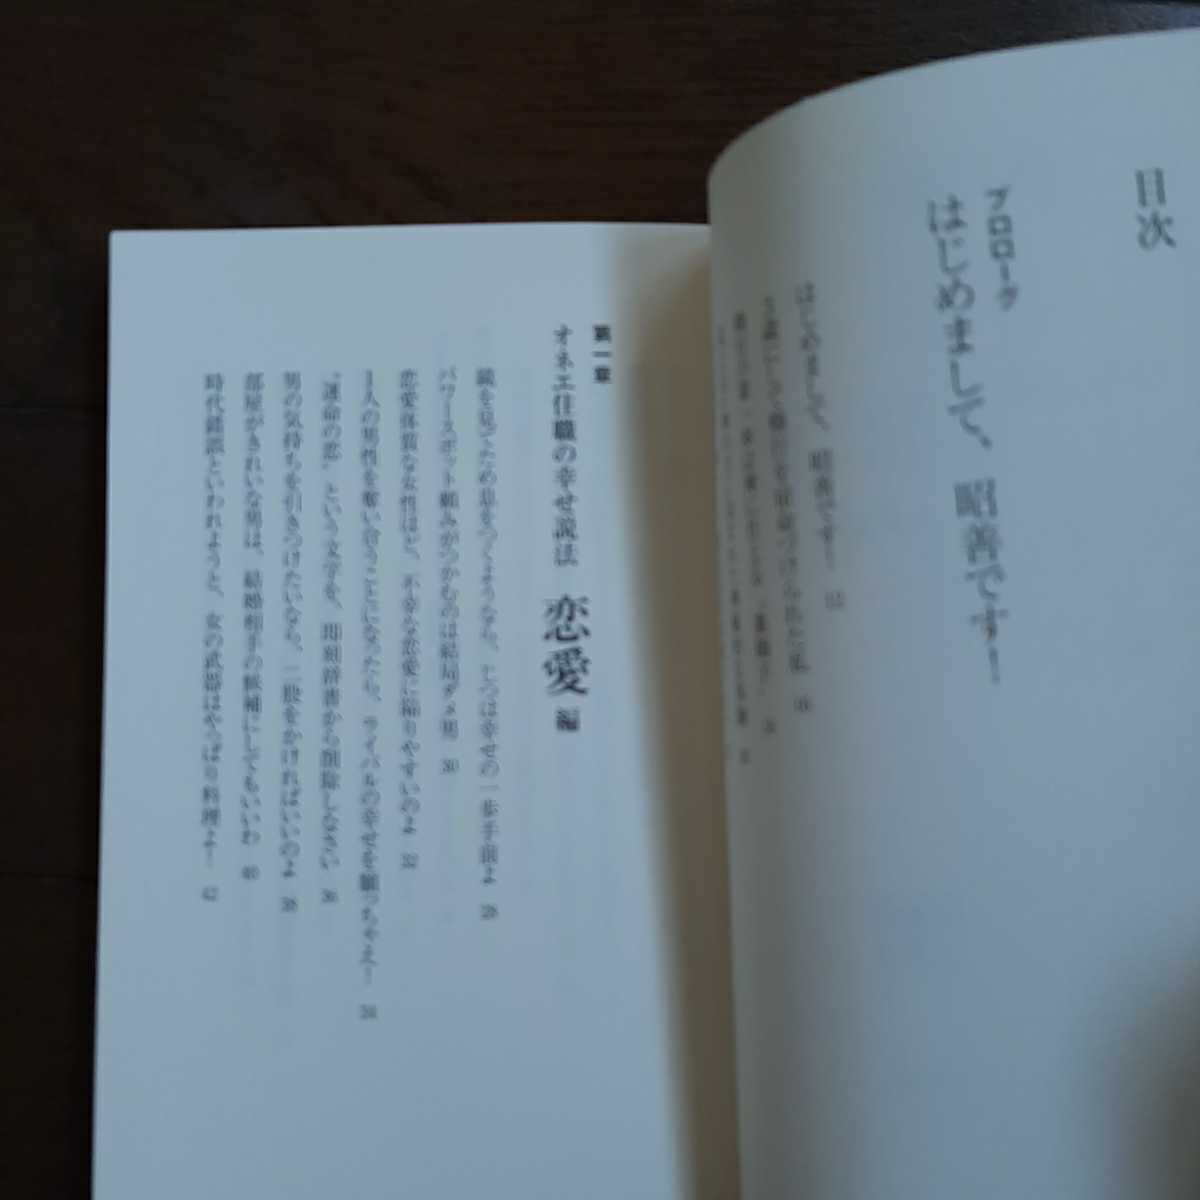 目次
プロローグ
はじめまして、昭善です！
はじめまして、昭善です！ 12
第一章
オネエ住職の幸せ説法 恋愛 編
鏡を見てため息をつくようなら、じつは幸せの一歩手前よ 28
パワースポット頼みがつかむのは結局ダメ男 30
恋愛体質な女性ほど、不幸な恋愛に陥りやすいのよ 32
1人の男性を奪い合うことになったら、ライバルの幸せを願っちゃえ！ 34
“運命の恋”という文字を、即刻辞書から削除しなさい 36
男の気持ちを引きつけたいなら、二股をかければいいのよ 38
部屋がきれいな男は、結婚相手の候補にしてもいいわ 40
時代錯誤といわれようと、女の武器はやっぱり料理よ！ 42